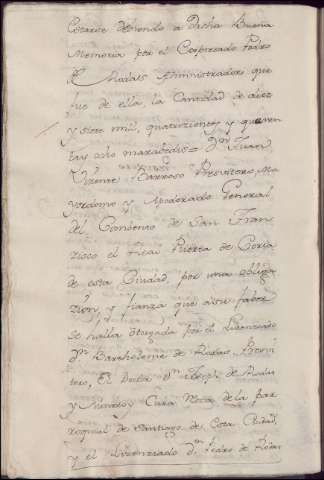 Estarse debiendo a Dicha Buena
Memoria por el Expresado Pedro
de Morales Administrador que
fue de ella, la Cantidad de diez
y siete mil, quatrocientos y quaren
ta y ocho maravedis = Dn Juan
Vizente Barroso Presvitero, Ma
yordomo y Apoderado General
del Combento de San Fran
zisco el Real Puerta de
de esta Ciudad, por una obliga
zion, y fianza que a su fabor
se halla otorgada por el Lizenciado
Dn Bartholome de Rodas Presvi
tero, El Doctor Dn Joseph de Rodas
y Cura de la par
roquial de Santiago de Esta Ciudad,
y el Lizenciado Dn Pedro de Rodas